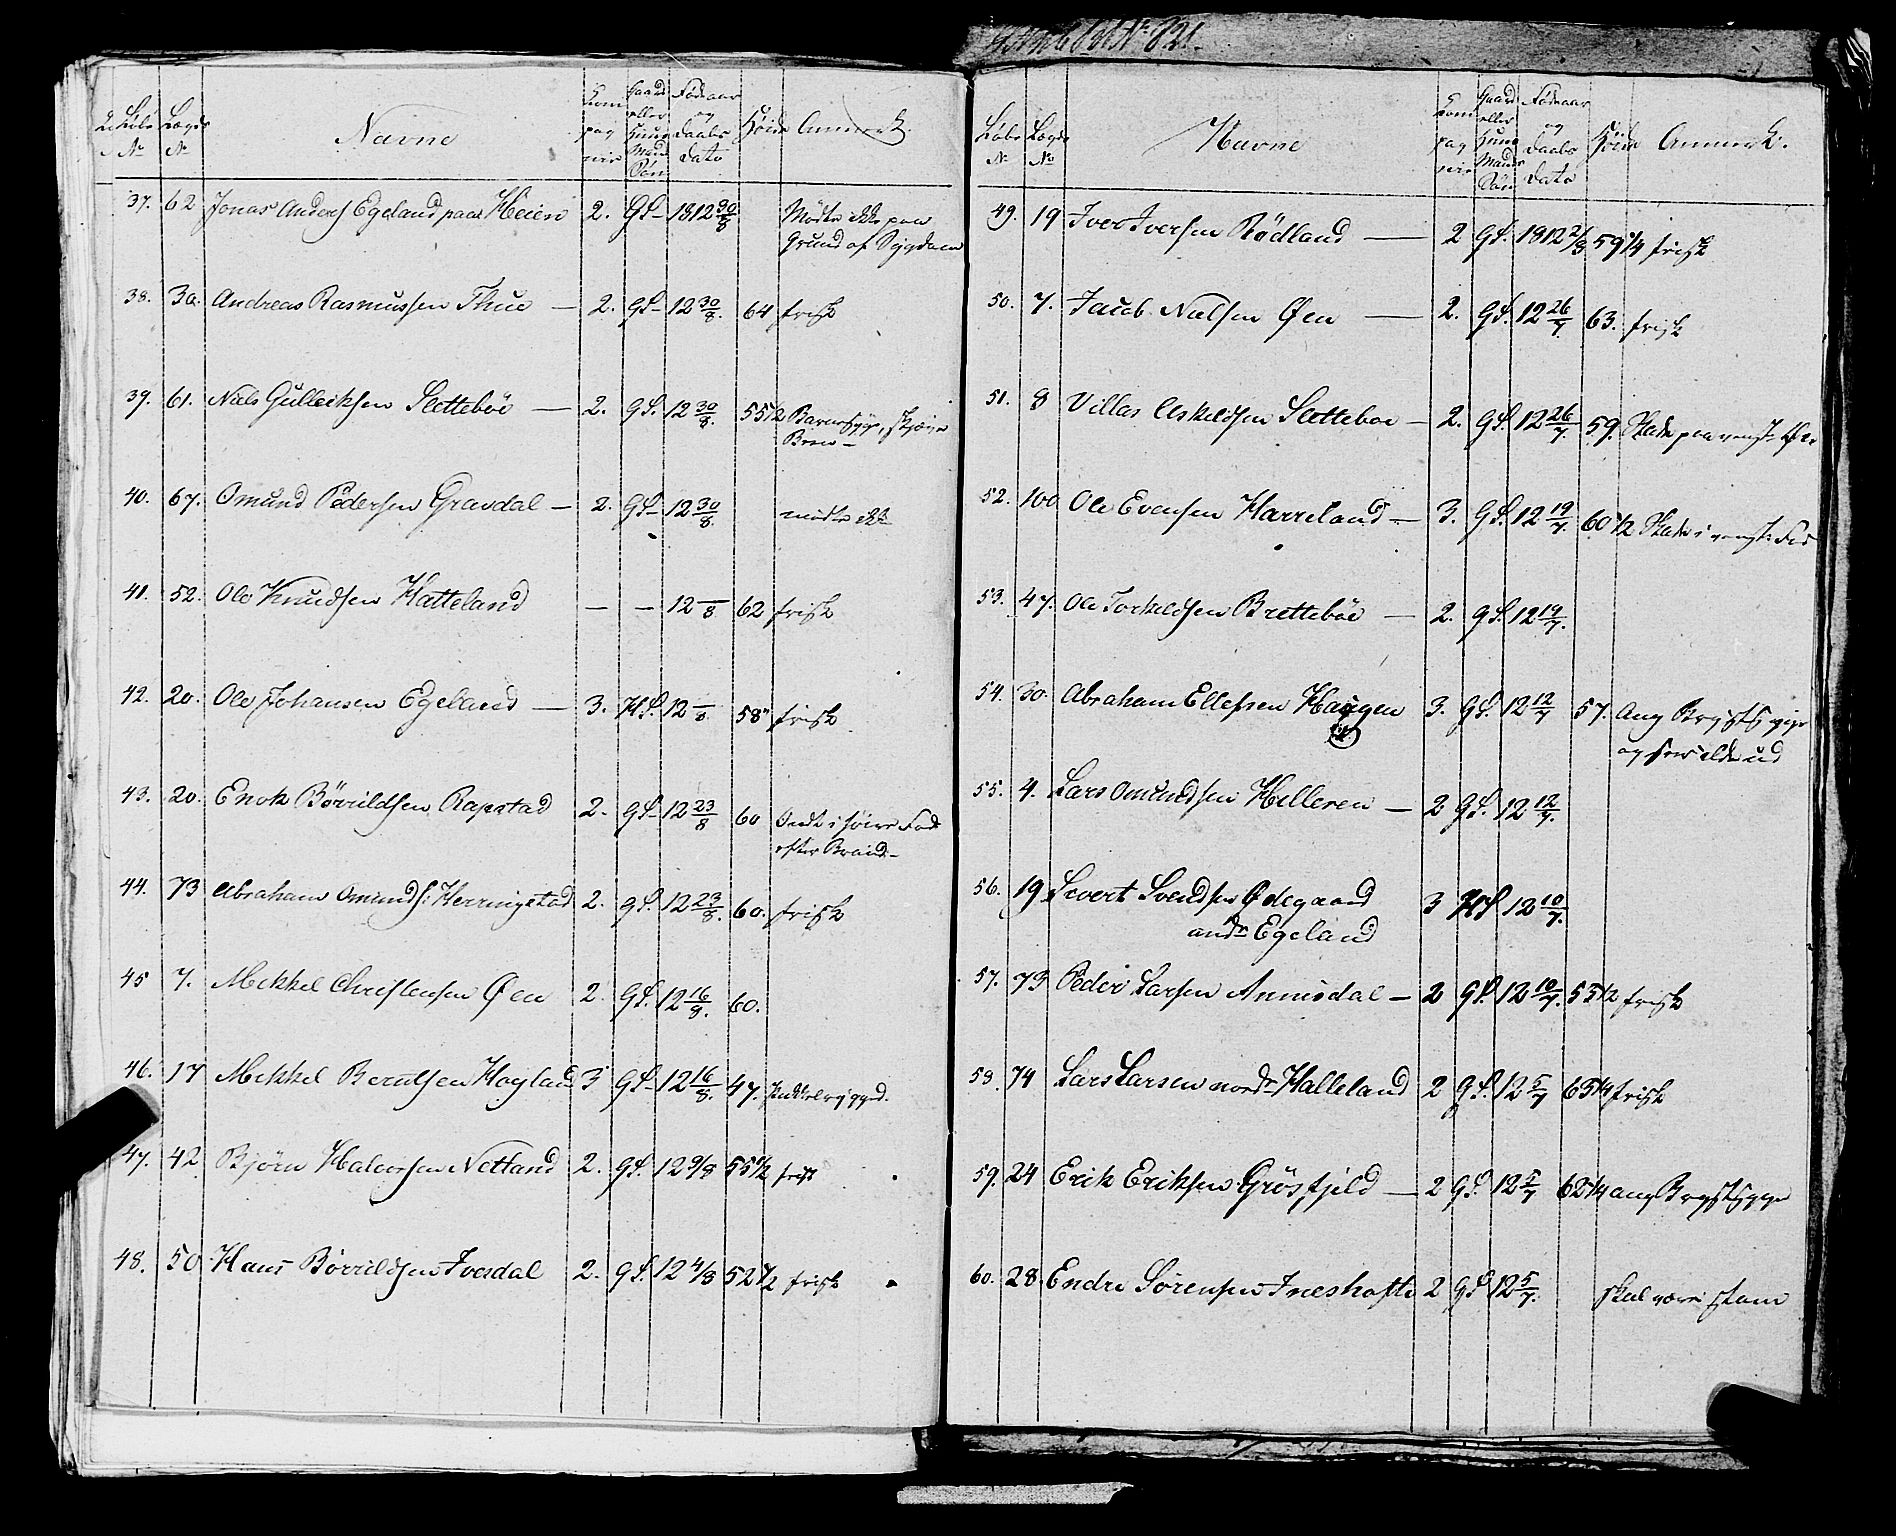 Løbe № Lægds № Navne Kom pag nie Gaard eller Huus Mands Søn Fødeaar og Daabs Dato Høide Anmerk.
37. 62 Jonas Anders Egeland paa Heien 2. GS– 1812 30/8 Mødte ikke paa
Grund af Sygdom
38. 30. Andreas Rasmussen Thue — 2. GS– 12 30/8. 64 frisk
39. 61. Niels Gulleiksen Slettebøe — 2. GS. 12 30/8. 55 1/2
Been –
40. 67. Omund Pedersen Gravdal – 2. GS– 12 30/8. mødte ikke
41. 52. Ole Knudsen Hatteland — — 12 –/8 62 frisk
42. 20. Ole Johansen Egeland — 3. HS. 12 –/8 58" frisk
43. 20. Enok Børrildsen Rapstad 2. GS– 12 23/8 60 Ondt i høire Fod
efter Brand –
44. 73 Abraham Omunds: Herringstad 2. GS. 12 23/8. 60. frisk
45 7. Mekkel Christensen Øen 2. GS. 12 16/8. 60.
46. 17 Mekkel Berntsen Hogland 3 GS– 12 16/8. 47. Pukkelrygged.
47. 42 Bjørn Halvorsen Netland 2. GS. 12 9/8 55 1/2 frisk
48. 50 Hans Børrildsen Ivesdal 2. GS. 12 4/8 52 1/2 frisk
Løbe № Lægds № Navne Kom pag nie Gaard eller Huus Mands Søn Fødeaar og Daabs Dato Høide Anmerk.
49. 19 Iver Iversen Rødland — 2 GS. 1812 2/8 59 1/4 frisk
50. 7. Jacob Nielsen Øen — 2. GS. 12 26/7. 63. frisk
51. 8 Villas Askildsen Sletteboe – 2. GS. 12 26/7. 59. Skade paa venst: Øie
52. 100 Ole Evensen Harreland – 3. GS. 12 19/7. 60 1/2 Skade i venst: Fod
53. 47. Ole Torkeldsen Brettebøe — 2. GS. 12 19/7.
54. 30. Abraham Ellefsen Haugen 3. GS. 12 12/7 57. Ang Brystsyge
og seer ilde ud
55. 4. Lars Omundsen Helleren — 2 GS. 12 12/7.
56. 19 Sivert Svendsen Ødegaard 3 HS 12 10/7.
andr Egeland
57. 73 Peder Larsen Annisdal – 2 GS. 12 10/7. 55 1/2 frisk
58. 74 Lars Larsen nordr Halleland 2 GS. 12 5/7 65 1/4 frisk
59. 24 Erik Eriksen Grøsfjeld — 2 GS. 12 5/7 62 1/4 ang Brystsyge
60. 28. Endre Sørensen Ineshafte 2 GS 12 5/7. skal være stam